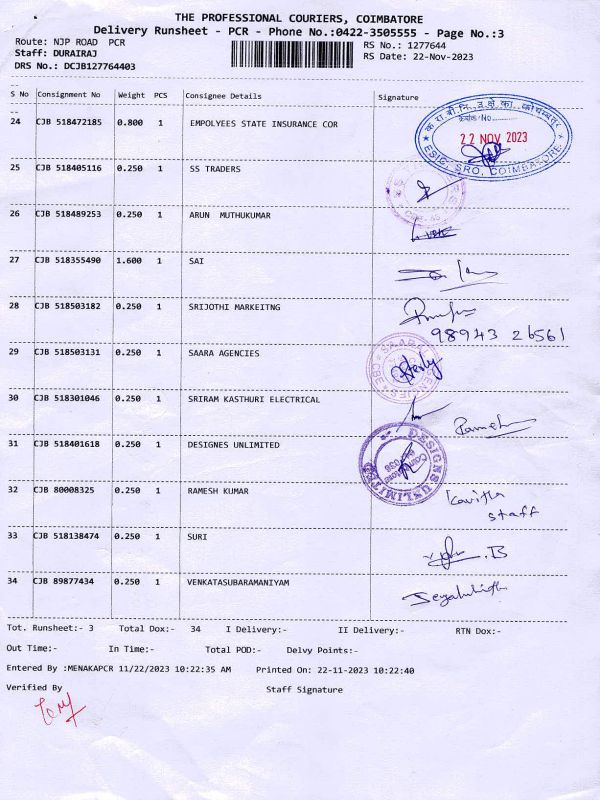 THE PROFESSIONAL COURIERS, COIMBATORE
Delivery Runsheet - PCR - Phone No.:0422-3505555 - Page No.:3
Route: NJP ROAD PCR
RS No.: 1277644
Staff: DURAIRAJ
RS Date: 22-Nov-2023
DRS No.: DCJB127764403
S No Consignment No Weight PCS Consignee Details Signature
24 CJB 518472185 0.800 1 EMPOLYEES STATE INSURANCE COR
No.
22 NOV 2023
ESIC, SRO, COIMBATORE
25 CJB 518405116 0.250 1 SS TRADERS
26 CJB 518489253 0.250 1 ARUN MUTHUKUMAR
27 CJB 518355490 1.600 1 SAI
28 CJB 518503182 0.250 1 SRIJOTHI MARKEITNG
98943 26561
29 CJB 518503131 0.250 1 SAARA AGENCIES
30 CJB 518301046 0.250 1 SRIRAM KASTHURI ELECTRICAL
31 CJB 518401618 0.250 1 DESIGNES UNLIMITED
DESIGNS UNLIMITED
32 CJB 80008325 0.250 1 RAMESH KUMAR
Kavitha
staff
33 CJB 518138474 0.250 1 SURI
34 CJB 89877434 0.250 1 VENKATASUBARAMANIYAM
Tot. Runsheet:- 3 Total Dox:- 34 I Delivery:- II Delivery:- RTN Dox:-
Out Time:- In Time:- Total POD:- Delvy Points:-
Entered By :MENAKAPCR 11/22/2023 10:22:35 AM Printed On: 22-11-2023 10:22:40
Verified By Staff Signature